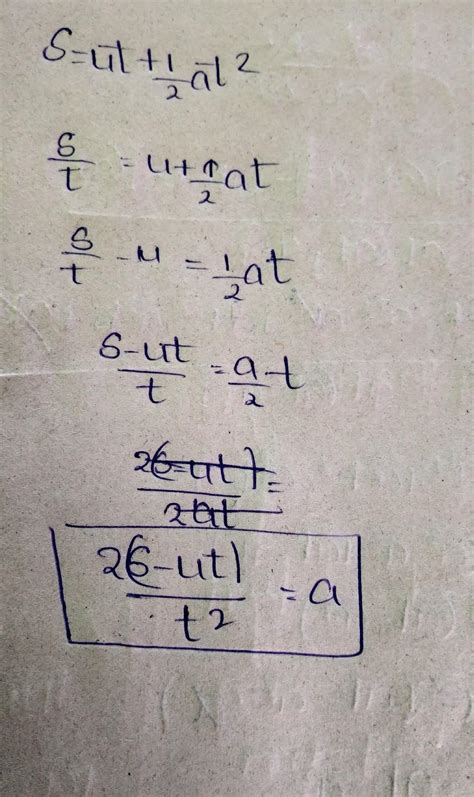 S=ut+1/2at²
S/t=u+1/2at
S/t-u=1/2at
S-ut/t=a/2t
2(S-ut)/2at=
2(S-ut)/t²=a